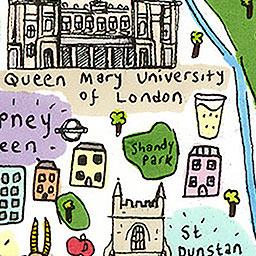 Queen Mary University
of London
pney
een
Shandy
Park
St
Dunstan